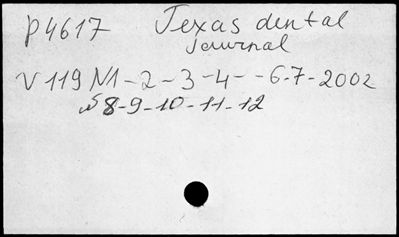 P4617 Texas dental
Journal
V 119 N1-2-3-4--6-7-2002
N 8-9-10-11-12